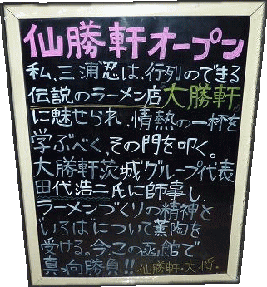 仙勝軒オープン
私、三浦忍は、行列のできる
伝説のラーメン店大勝軒
に魅せられ、情熱の一杯を
学ぶべく、その門を叩く。
大勝軒茨城グループ代表
田代浩二氏に師事し
ラーメンづくりの精神と
いろはについて薫陶を
受ける。今、この函館で
真向勝負!! 仙勝軒・大将。